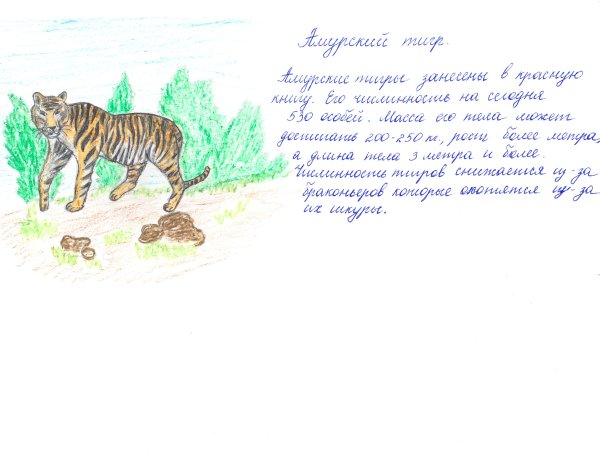 Амурский тигр.
Амурские тигры занесены в красную
книгу. Его числинность на сегодня
530 особей. Масса его тела может
достигать 200-250 кг., рост более метра,
а длина тела 3 метра и более.
Числинность тигров снижается из-за
браконьеров которые охотятся из-за
их шкуры.